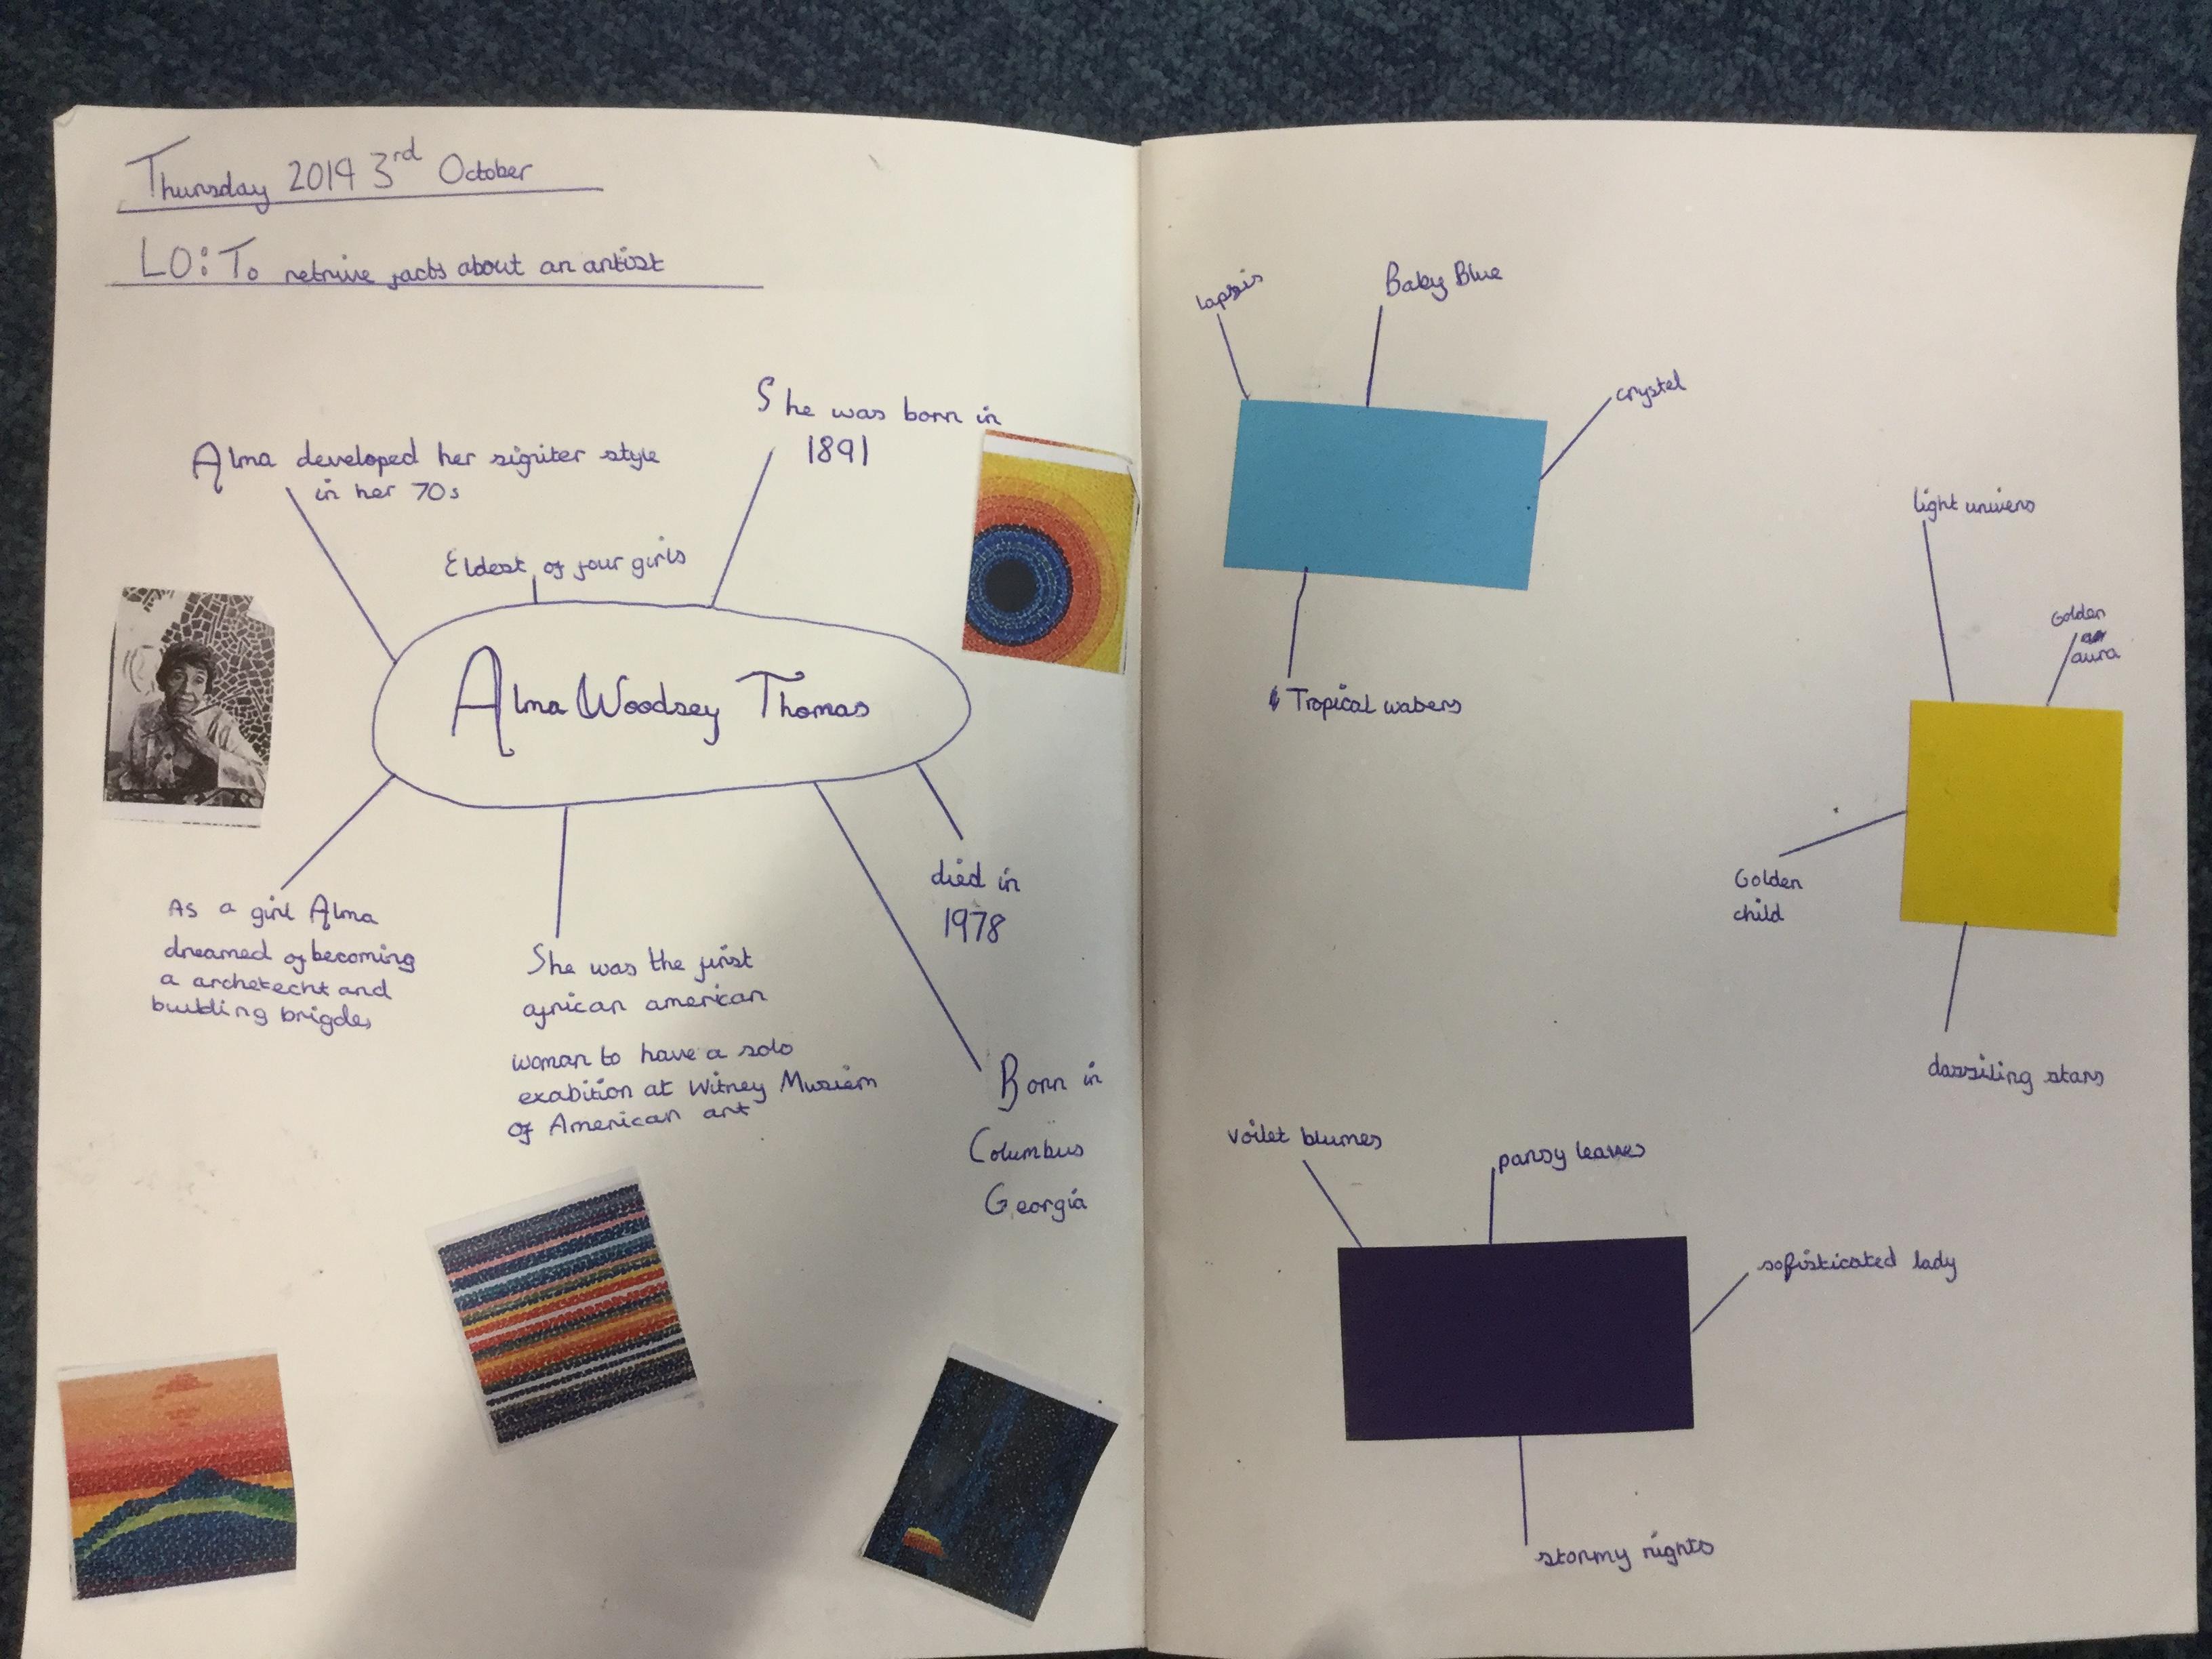 Thursday 2019 3rd October
LO: To retrive facts about an artist
Alma developed her signiter style
in her 70s
She was born in
1891
Eldest of four girls
Alma Woodsey Thomas
As a girl Alma
dreamed of becoming
a archetecht and
building brigdes
She was the first
african american
woman to have a solo
exabition at Witney Musiem
of American art
died in
1978
Born in
Columbus
Georgia
Baby Blue
crystel
Tropical waters
light univers
Golden
aura
Golden
child
dazziling stars
voilet blumes
pansy leaves
sofisticated lady
stormy nights